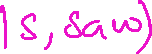 |s, saw)